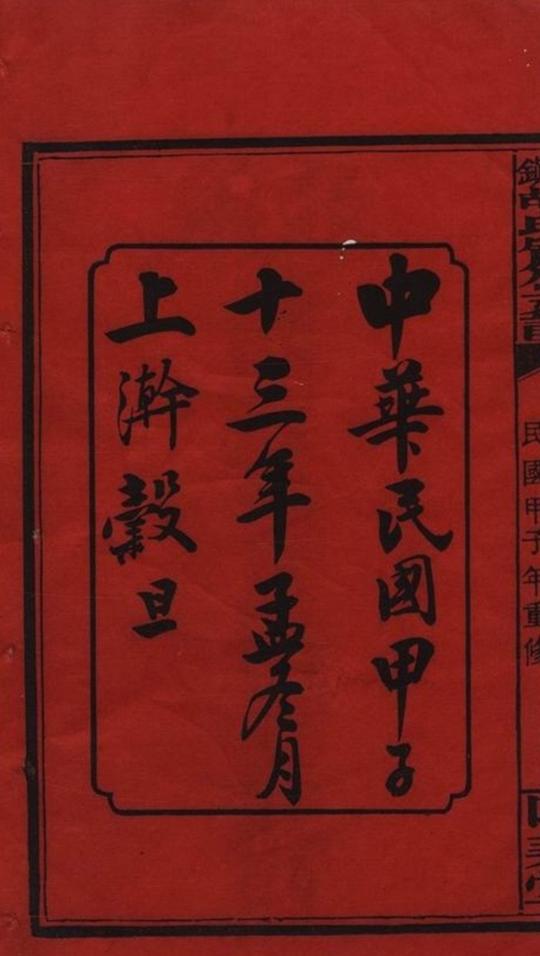 中華民國甲子
十三年孟冬月
上澣穀旦
民國甲子年重修